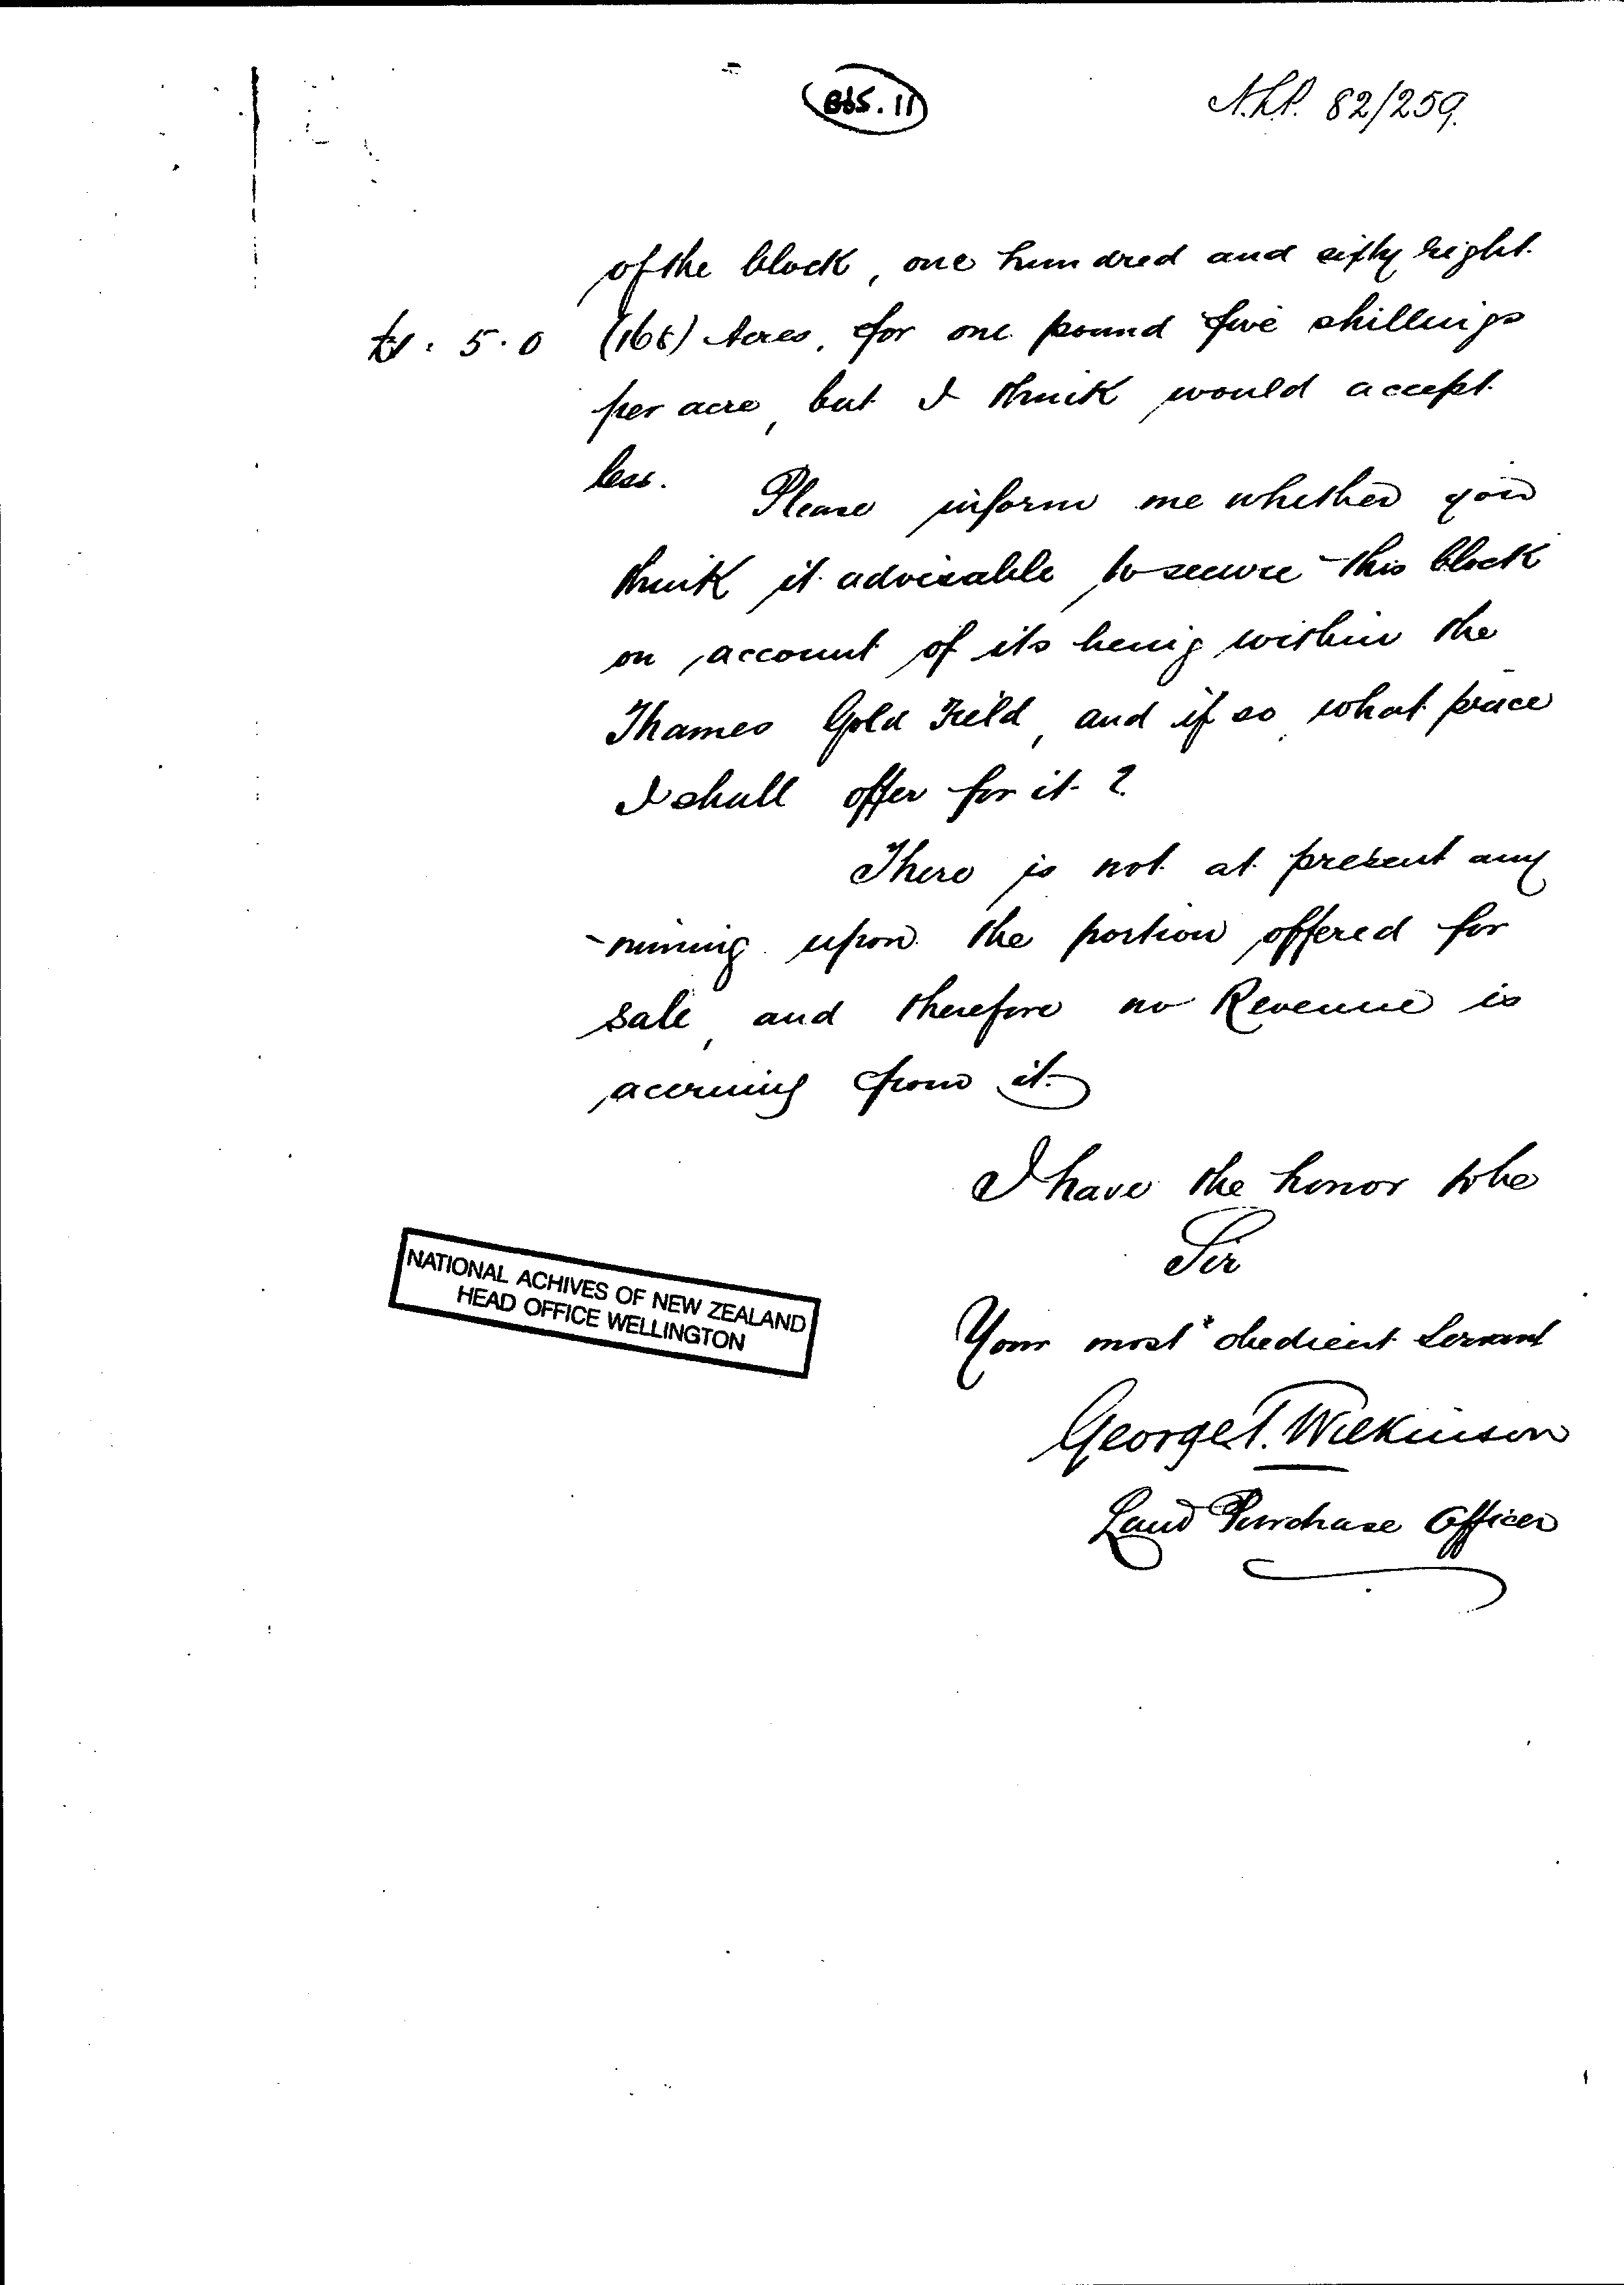 N.L.P. 82/259.
of the block, one hundred and sixty eight
£1 . 5 . 0 (168) Acres, for one pound five shillings
per acre, but I think would accept
less.
Please inform me whether you
think it advisable to secure this block
on account of its being within the
Thames Gold Field, and if so, what price
I shall offer for it?
There is not at present any
mining upon the portion offered for
sale, and therefore no Revenue is
accruing from it.
I have the honor to be
Sir
NATIONAL ACHIVES OF NEW ZEALAND
HEAD OFFICE WELLINGTON
Your most obedient Servant
George T. Wilkinson
Land Purchase Officer